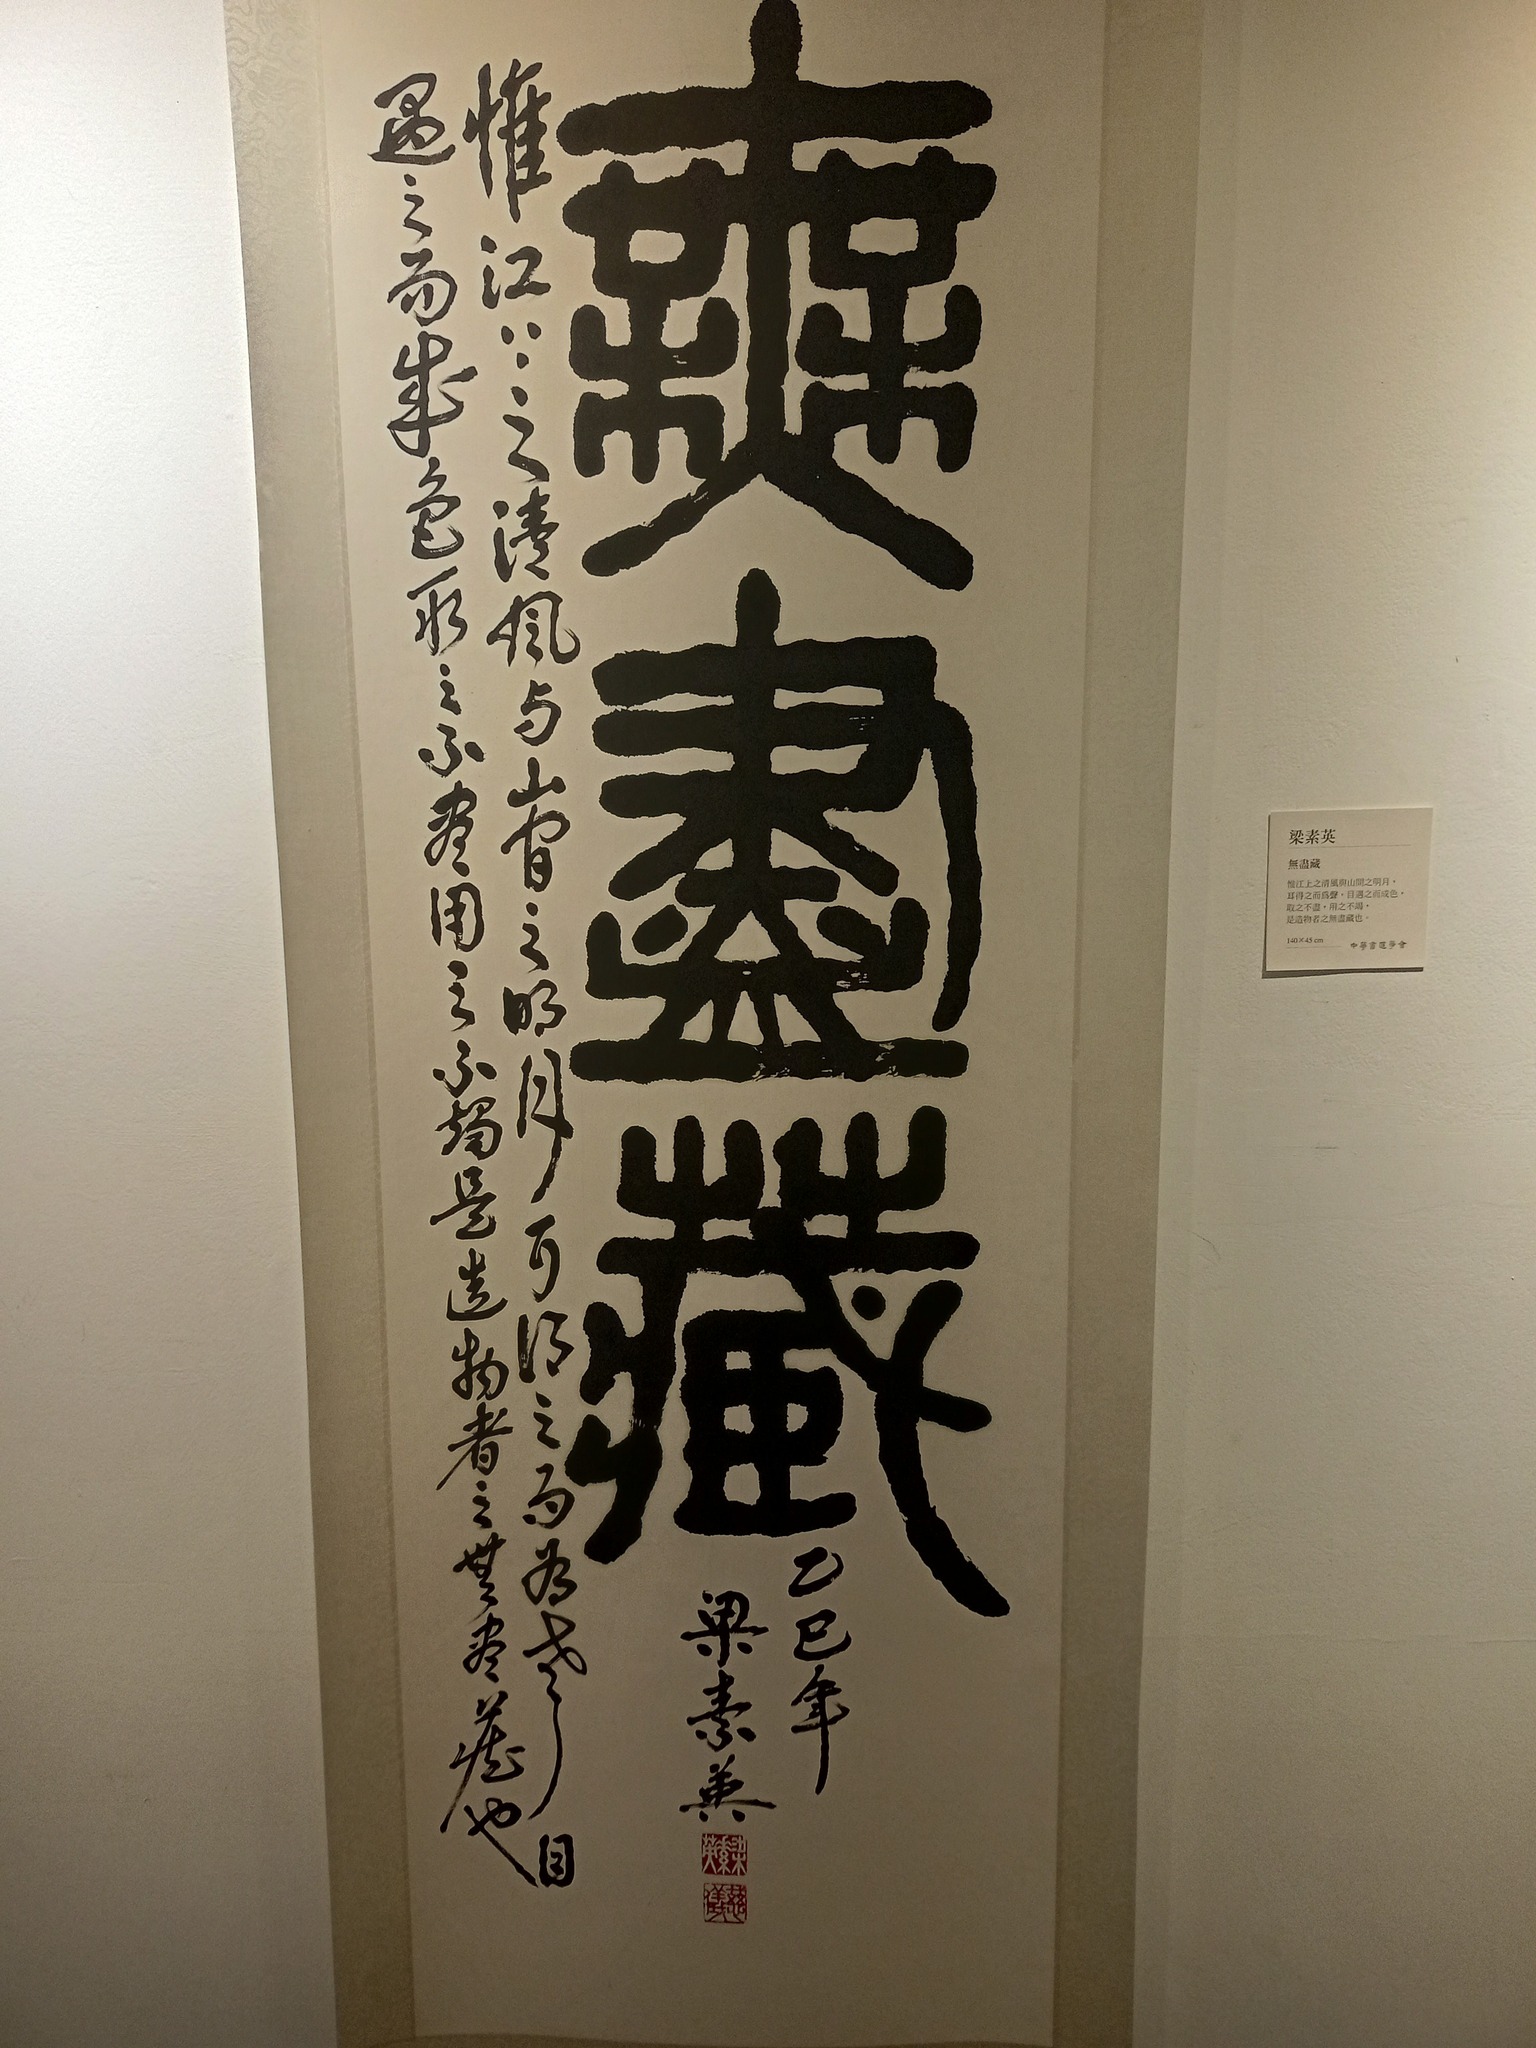 無盡藏
乙巳年
梁素英
惟江上之清風与山間之明月耳得之而為聲目
遇之而成色取之不盡用之不竭是造物者之無盡藏也
梁素英
梁素英
無盡藏
惟江上之清風與山間之明月，
耳得之而爲聲，目遇之而成色，
取之不盡，用之不竭，
是造物者之無盡藏也。
140×45 cm
中華書道學會